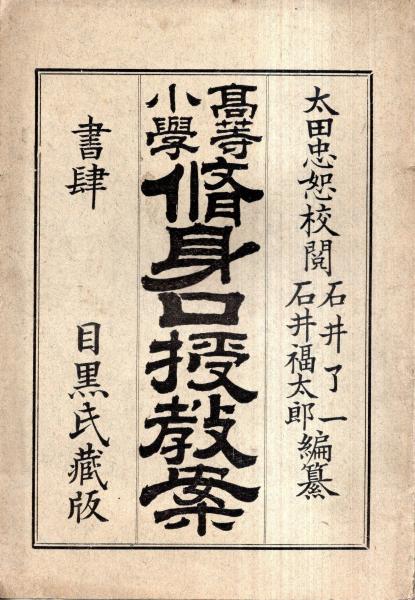 太田忠恕校閲 石井了一 石井福太郎 編纂
高等小學 脩身口授敎案
書肆 目黒氏藏版